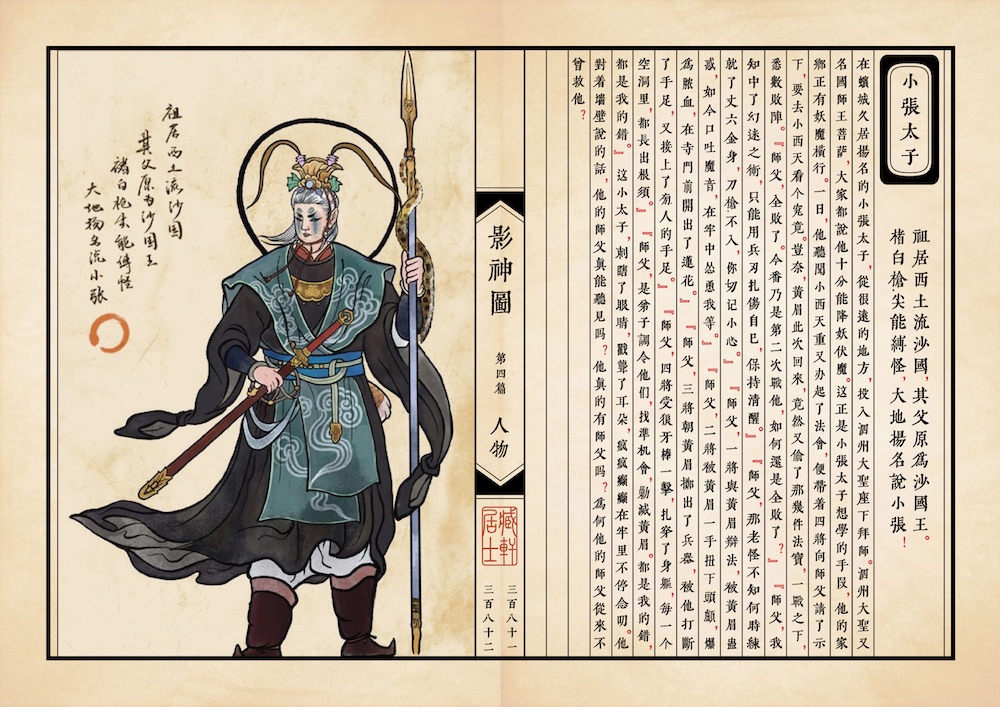 小張太子
祖居西土流沙國，其父原爲沙國王。
楮白槍尖能縛怪，大地揚名說小張！
在蠙城久居揚名的小張太子，從很遠的地方，投入泗州大聖座下拜師。泗州大聖又
名國師王菩薩，大家都說他十分能降妖伏魔。這正是小張太子想學的手段，他的家
鄉正有妖魔橫行。一日，他聽聞小西天重又办起了法會，便帶着四將向師父請了示
下，要去小西天看个究竟。豈奈，黃眉此次回來，竟然又偷了那幾件法寶，一戰之下，
悉數敗陣。『師父，全敗了。今番乃是第二次戰他，如何還是全敗了？』『師父，我
知中了幻迷之術，只能用兵刃扎傷自己，保持清醒。』『師父，那老怪不知何時練
就了丈六金身，刀槍不入，你切记小心。』『師父，一將與黃眉辯法，被黃眉蠱
惑，如今口吐魔音，在牢中怂恿我等。』『師父，二將被黃眉一手扭下頭顱，爆
爲膿血，在寺門前開出了蓮花。』『師父，三將朝黃眉擲出了兵器，被他打斷
了手足，又接上了别人的手足。』『師父，四將受狼牙棒一擊，扎穿了身軀，每一个
空洞里，都長出根须。』『師父，是弟子訓令他们，找準机會，勦滅黃眉。都是我的錯，
都是我的錯。』这小太子，刺瞎了眼睛，戳聾了耳朵，疯疯癲癲在牢里不停念叨。他
對着墙壁說的話，他的師父真能聽見吗？他真的有師父吗？爲何他的師父從來不
曾救他？
影神圖
第四篇
人物
藏軒居士
三百八十一
三百八十二
祖居西土流沙國
其父原為沙國王
楮白槍尖能縛怪
大地揚名說小張